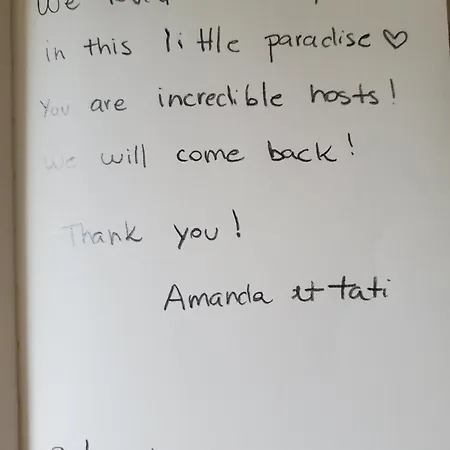 We
in this little paradise ♡
You are incredible hosts!
We will come back!
Thank you!
Amanda et tati